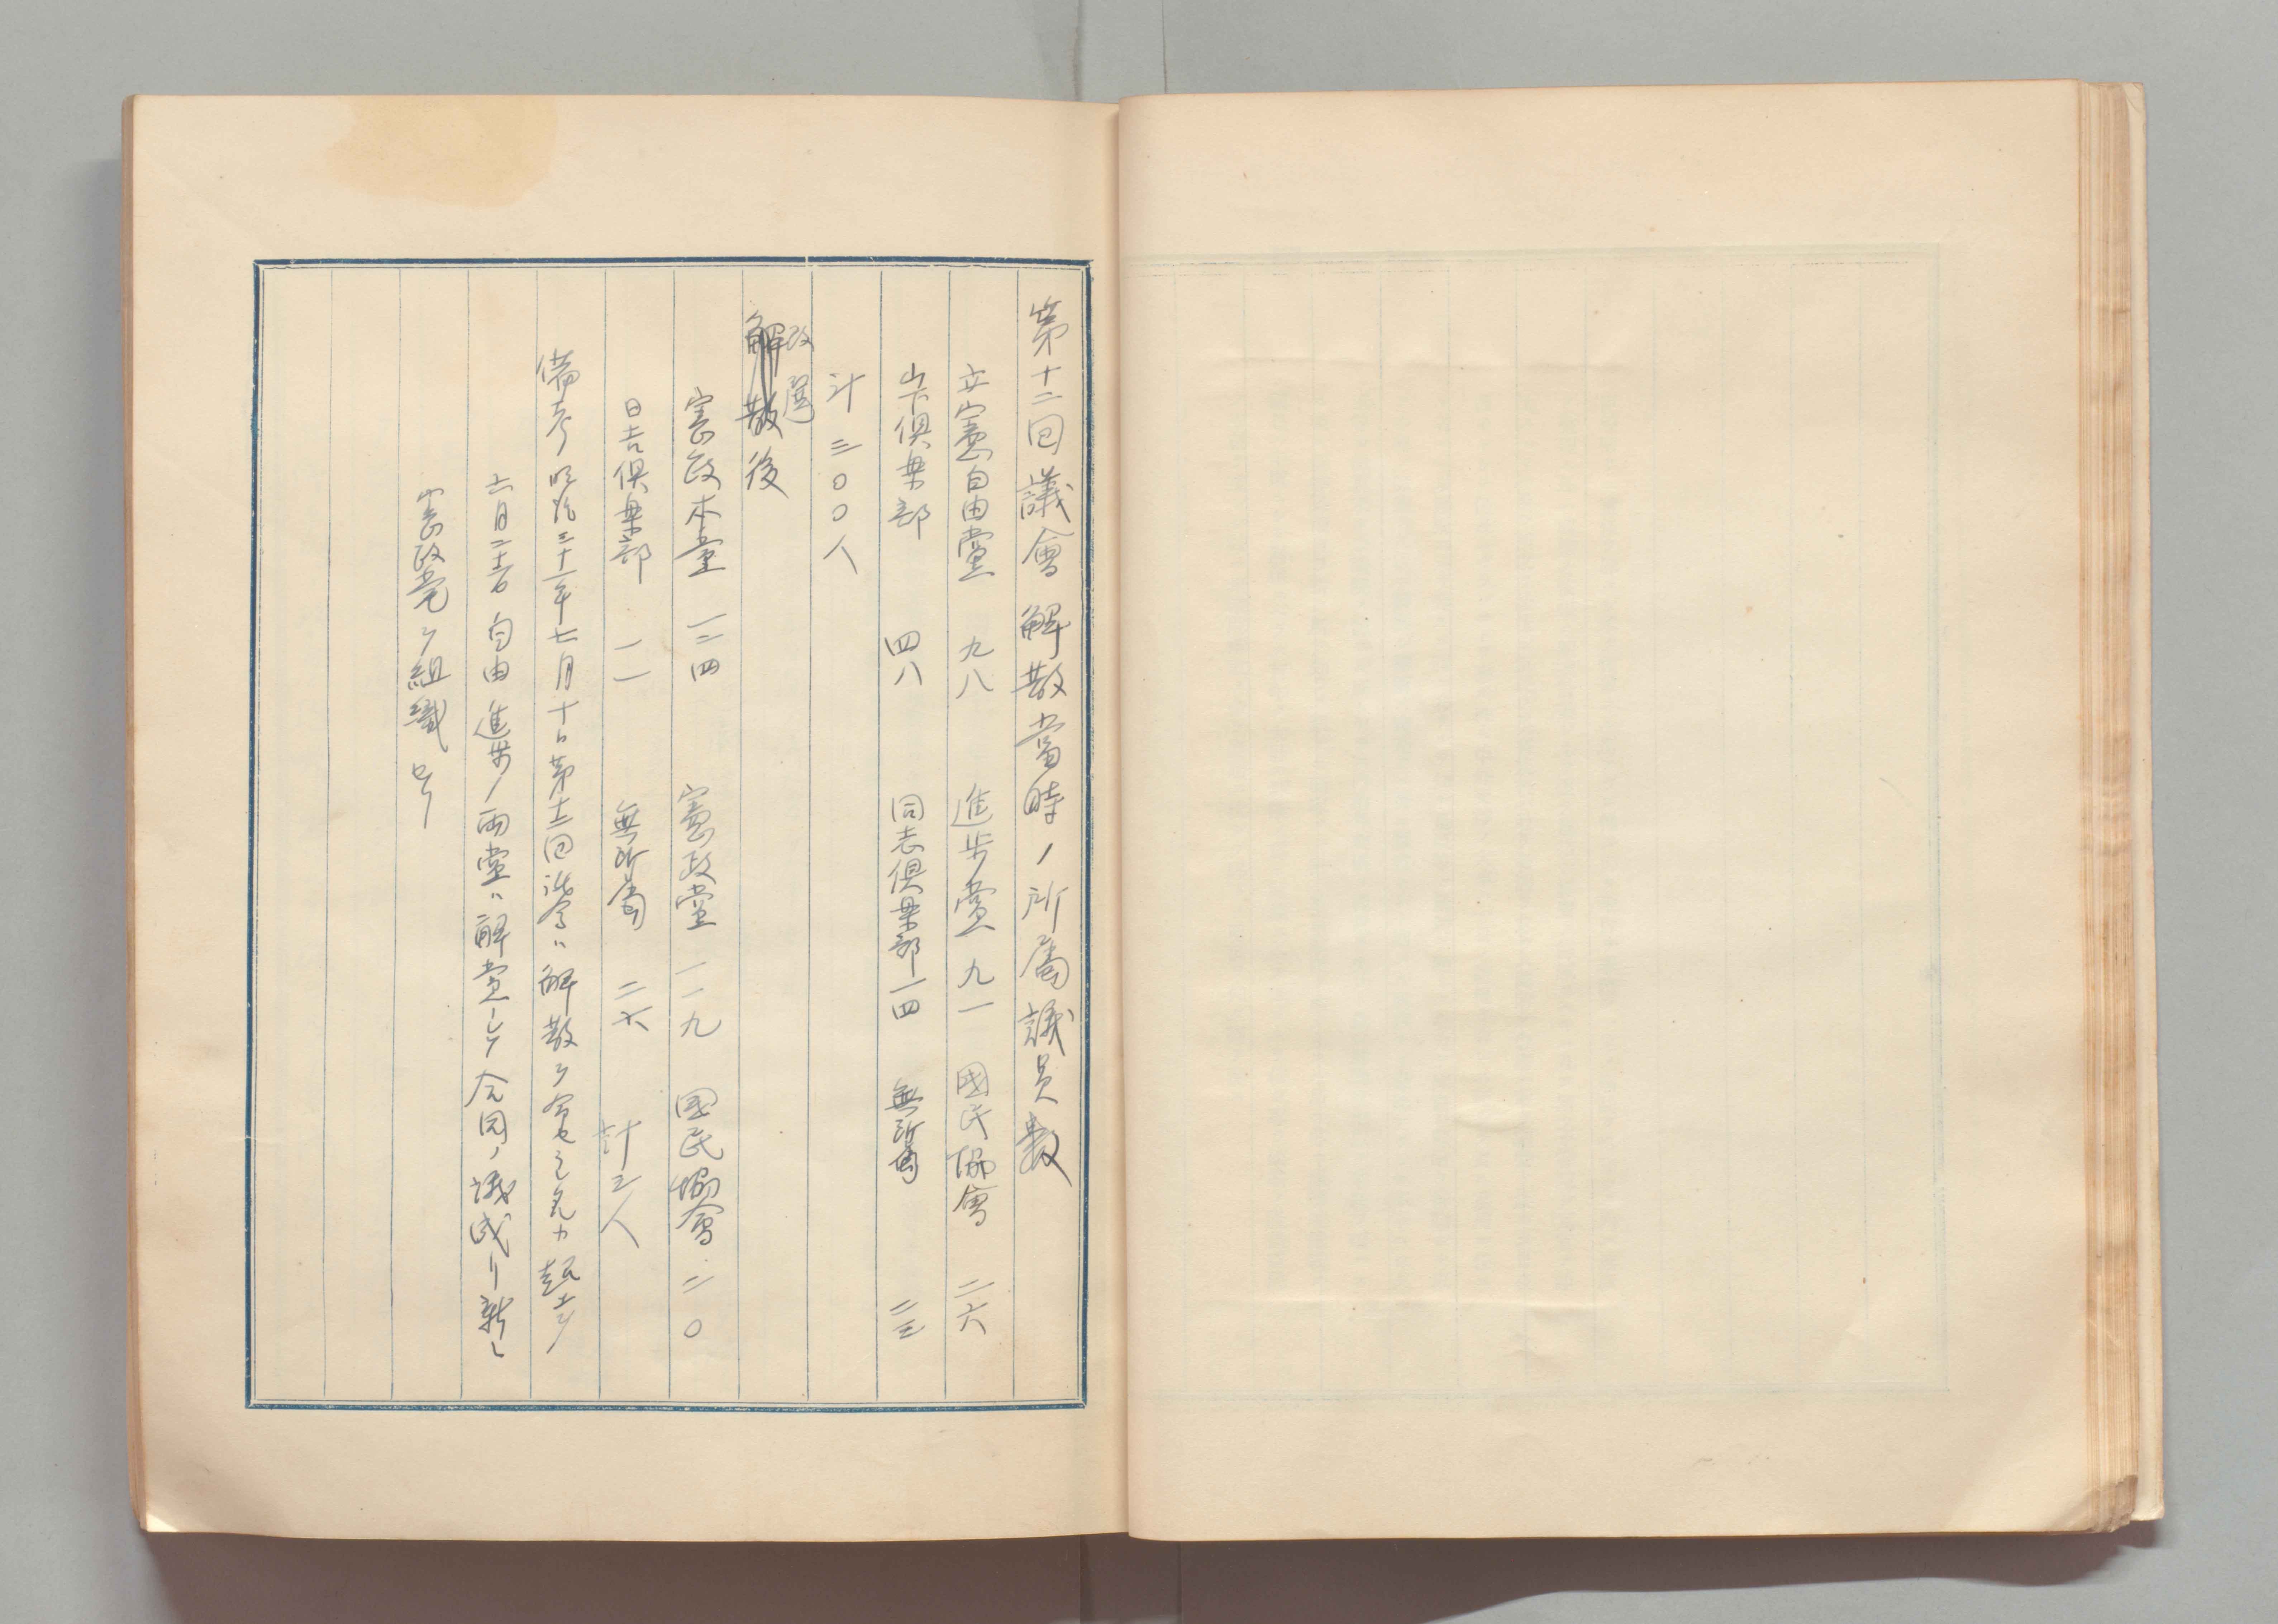 第十二回議會解散當時ノ所屬議員數
立憲自由黨 九八 進歩黨 九一 國民協會 二六
山下倶楽部 四八 同志倶楽部 一四 無所屬 二三
計三〇〇人
改選
解散後
憲政本党 一二四 憲政党 一一九 國民協會 二〇
日吉倶楽部 一一 無所屬 二六 計三〇〇人
備考 明治三十一年七月十日第十二回議会ハ解散ヲ
六月二十二日自由進歩ノ両党ハ解党シテ合同ノ議成リ新ニ
憲政党ヲ組織